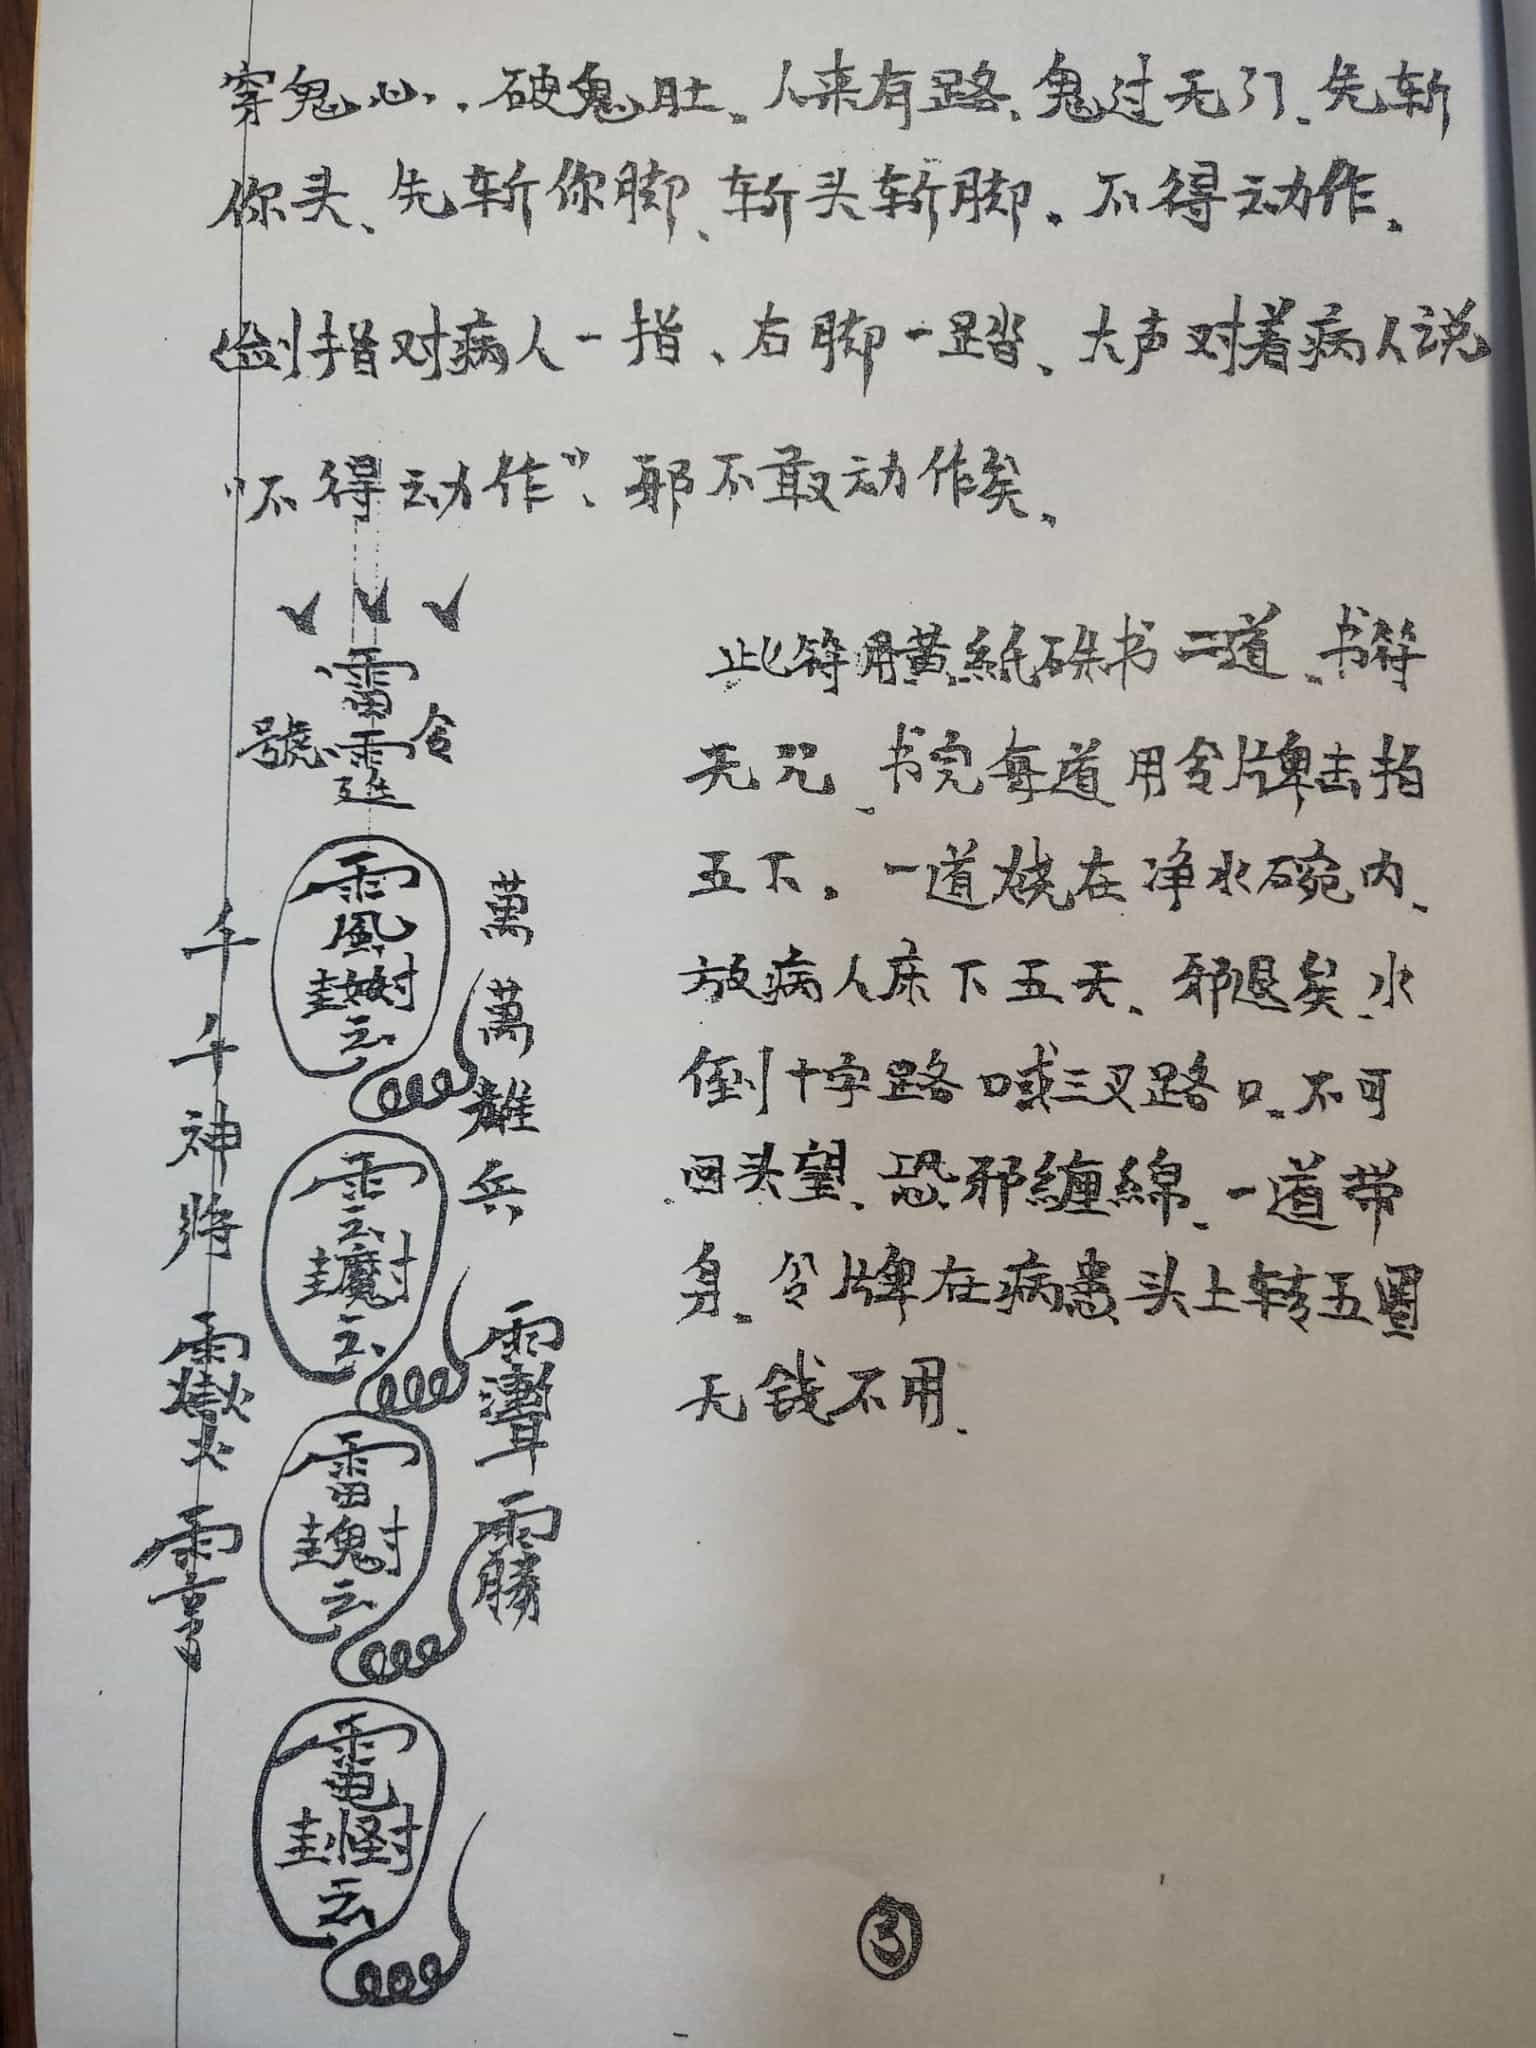 穿鬼心、破鬼肚、人来有路、鬼过无门、先斩
你头、先斩你脚、斩头斩脚。不得动作。
剑指对病人一指、右脚一踏、大声对着病人说
"不得动作"、邪不敢动作矣。
此符用黄紙硃书二道、书符
无咒、书完每道用令牌击指
五下。一道烧在净水碗内、
放病人床下五天、邪退矣、水
倒十字路口或三叉路口、不可
回头望、恐邪缠綿、一道带
身、令牌在病患头上转五圈
无钱不用、
雷霆
號令
千千神將
萬萬雄兵
③